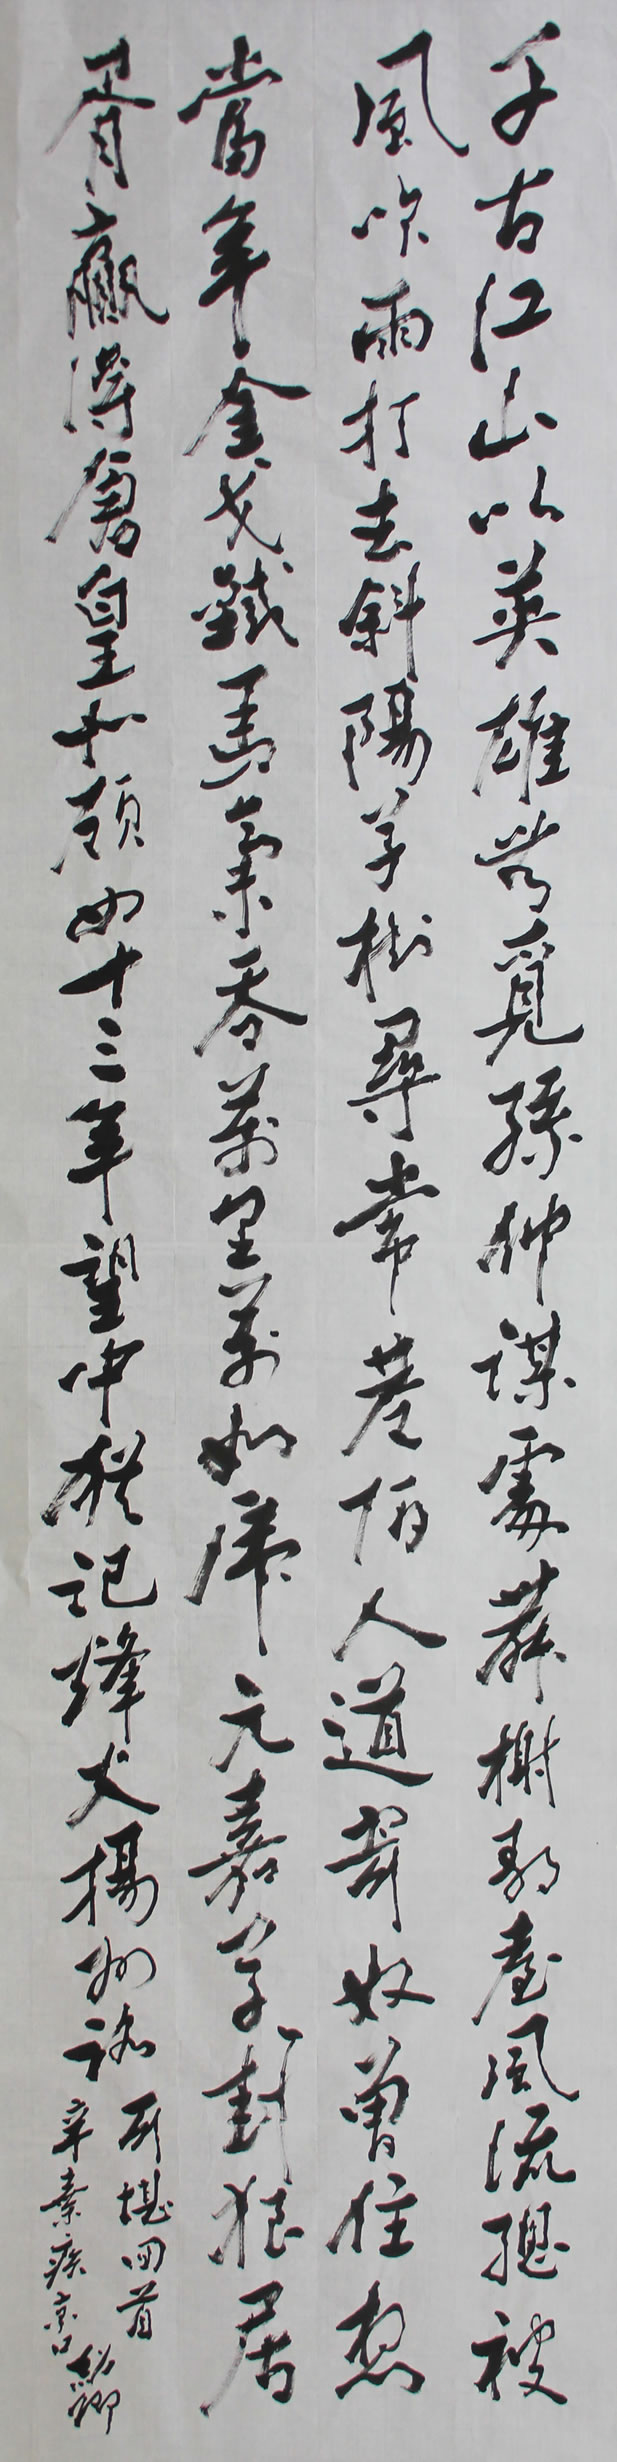 千古江山以英雄無覓孫仲謀處舞榭歌臺風流總被
風吹雨打去斜陽草樹尋常巷陌人道寄奴曾住想
當年金戈鐵馬氣吞萬里萬如虎元嘉草封狼居
胥贏得倉皇北顧四十三年望中猶記烽火揚州路
可堪回首
辛棄疾京口